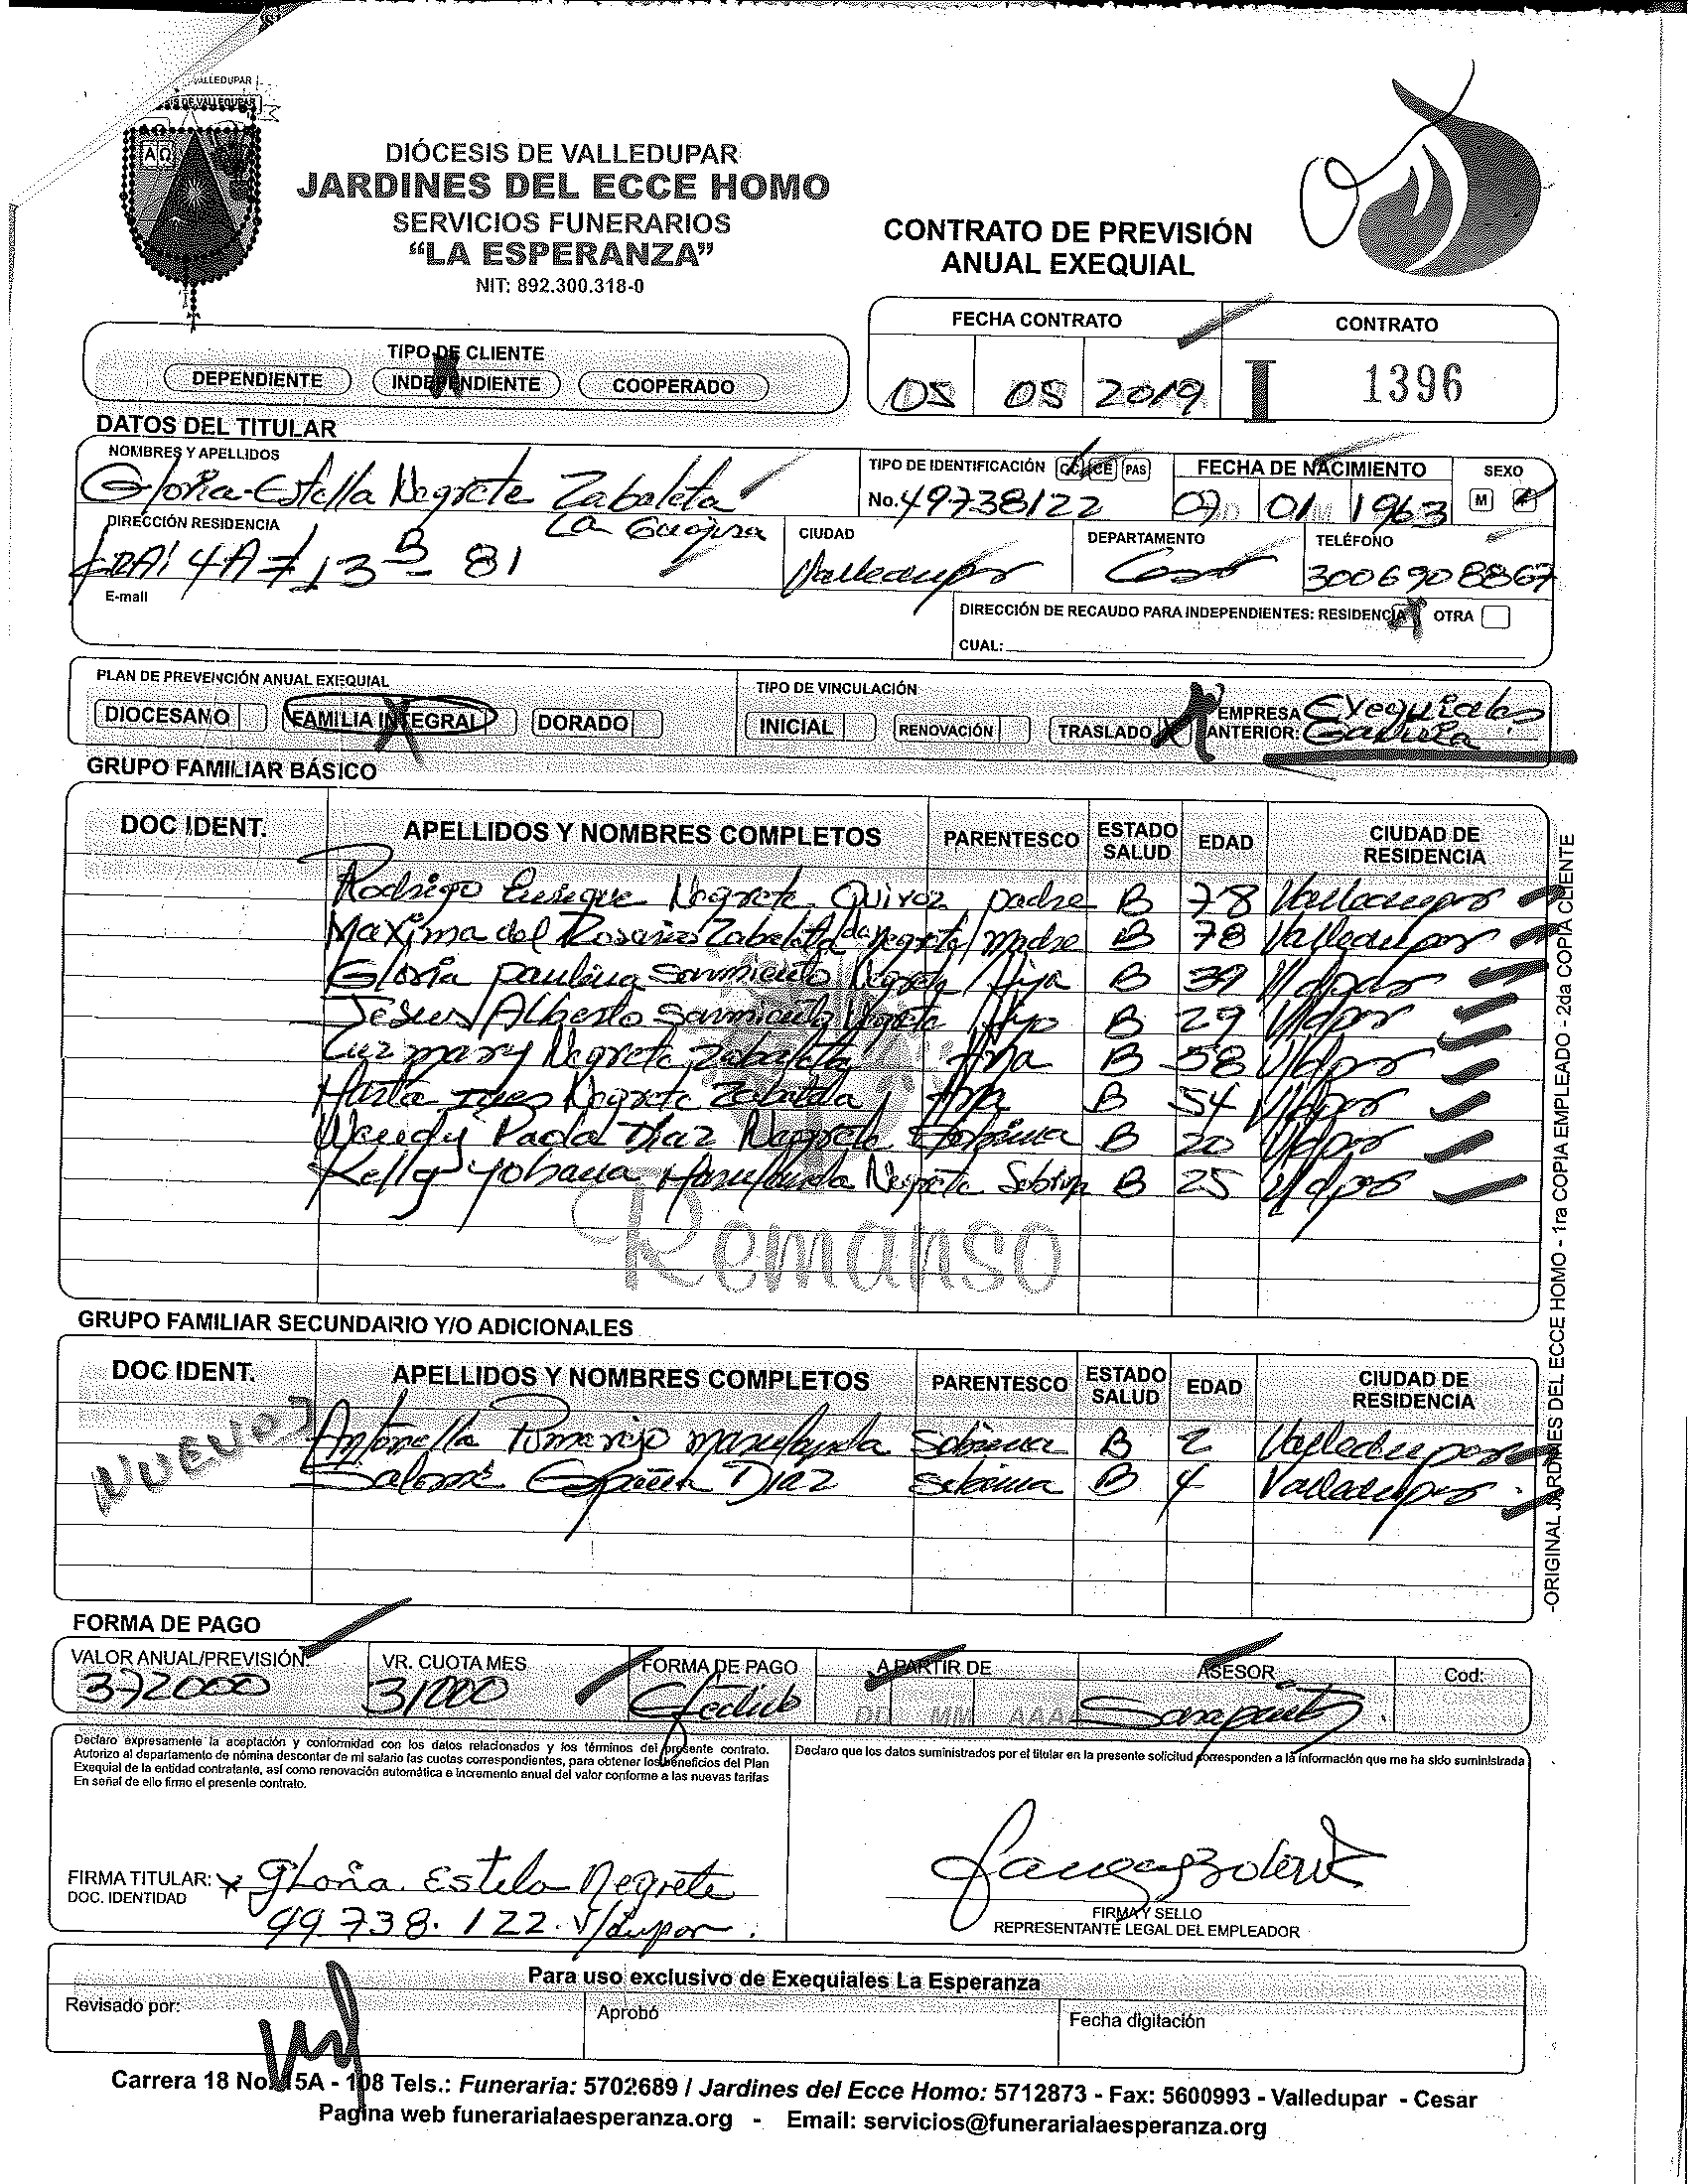 VALLEDUPAR
DIÓCESIS DE VALLEDUPAR
JARDINES DEL ECCE HOMO
SERVICIOS FUNERARIOS
"LA ESPERANZA"
NIT: 892.300.318-0
CONTRATO DE PREVISIÓN
ANUAL EXEQUIAL
FECHA CONTRATO CONTRATO
05 05 2019 I 1396
TIPO DE CLIENTE
DEPENDIENTE INDEPENDIENTE COOPERADO
DATOS DEL TITULAR
NOMBRES Y APELLIDOS TIPO DE IDENTIFICACIÓN CC CE PAS FECHA DE NACIMIENTO SEXO
Gloria Estella Negrete Zabaleta No. 49738122 07 01 1963 M
DIRECCIÓN RESIDENCIA La Guajira CIUDAD DEPARTAMENTO TELÉFONO
CRA 4A # 13 B - 81 Valledupar Cesar 3006908867
E-mail DIRECCIÓN DE RECAUDO PARA INDEPENDIENTES: RESIDENCIA OTRA
CUAL:
PLAN DE PREVENCIÓN ANUAL EXEQUIAL TIPO DE VINCULACIÓN
DIOCESANO FAMILIA INTEGRAL DORADO INICIAL RENOVACIÓN TRASLADO EMPRESA ANTERIOR: Exequiales
GRUPO FAMILIAR BÁSICO
DOC IDENT. APELLIDOS Y NOMBRES COMPLETOS PARENTESCO ESTADO SALUD EDAD CIUDAD DE RESIDENCIA
Rodrigo Enrique Negrete Quiroz padre B 78 Valledupar
Maxima del Rosario Zabaleta de Negrete madre B 78 Valledupar
Gloria paulina Sarmiento Negrete Hija B 39 V/dpar
Jesus Alberto Sarmiento Negrete Hijo B 29 V/dpar
Luz mary Negrete Zabaleta Hna B 58 V/dpar
Ines Negrete Zabaleta Hna B 54 V/dpar
Wendy Paola Diaz Negrete Sobrina B 20 V/dpar
Kelly Yohana Marulanda Negrete Sobrina B 25 V/dpar
Remanso
GRUPO FAMILIAR SECUNDARIO Y/O ADICIONALES
DOC IDENT. APELLIDOS Y NOMBRES COMPLETOS PARENTESCO ESTADO SALUD EDAD CIUDAD DE RESIDENCIA
NUEVO Antonella Pumarejo marulanda Sobrina B 2 Valledupar
Salomé Diaz Sobrina B 4 Valledupar
-ORIGINAL JARDINES DEL ECCE HOMO - 1ra COPIA EMPLEADO - 2da COPIA CLIENTE
FORMA DE PAGO
VALOR ANUAL/PREVISIÓN: VR. CUOTA MES FORMA DE PAGO A PARTIR DE ASESOR Cod:
372000 31000 DD MM AAAA
Declaro expresamente la aceptación y conformidad con los datos relacionados y los términos del presente contrato.
Autorizo al departamento de nómina descontar de mi salario las cuotas correspondientes, para obtener los beneficios del Plan
Exequial de la entidad contratante, así como renovación automática e incremento anual del valor conforme a las nuevas tarifas
En señal de ello firmo el presente contrato.
Declaro que los datos suministrados por el titular en la presente solicitud corresponden a la información que me ha sido suministrada
FIRMA TITULAR: x Gloria Estela Negrete
DOC. IDENTIDAD 49738.122. V/dupar.
FIRMA Y SELLO
REPRESENTANTE LEGAL DEL EMPLEADOR
Para uso exclusivo de Exequiales La Esperanza
Revisado por: Aprobó Fecha digitación
Carrera 18 No. 15A - 108 Tels.: Funeraria: 5702689 / Jardines del Ecce Homo: 5712873 - Fax: 5600993 - Valledupar - Cesar
Pagina web funerarialaesperanza.org - Email: servicios@funerarialaesperanza.org